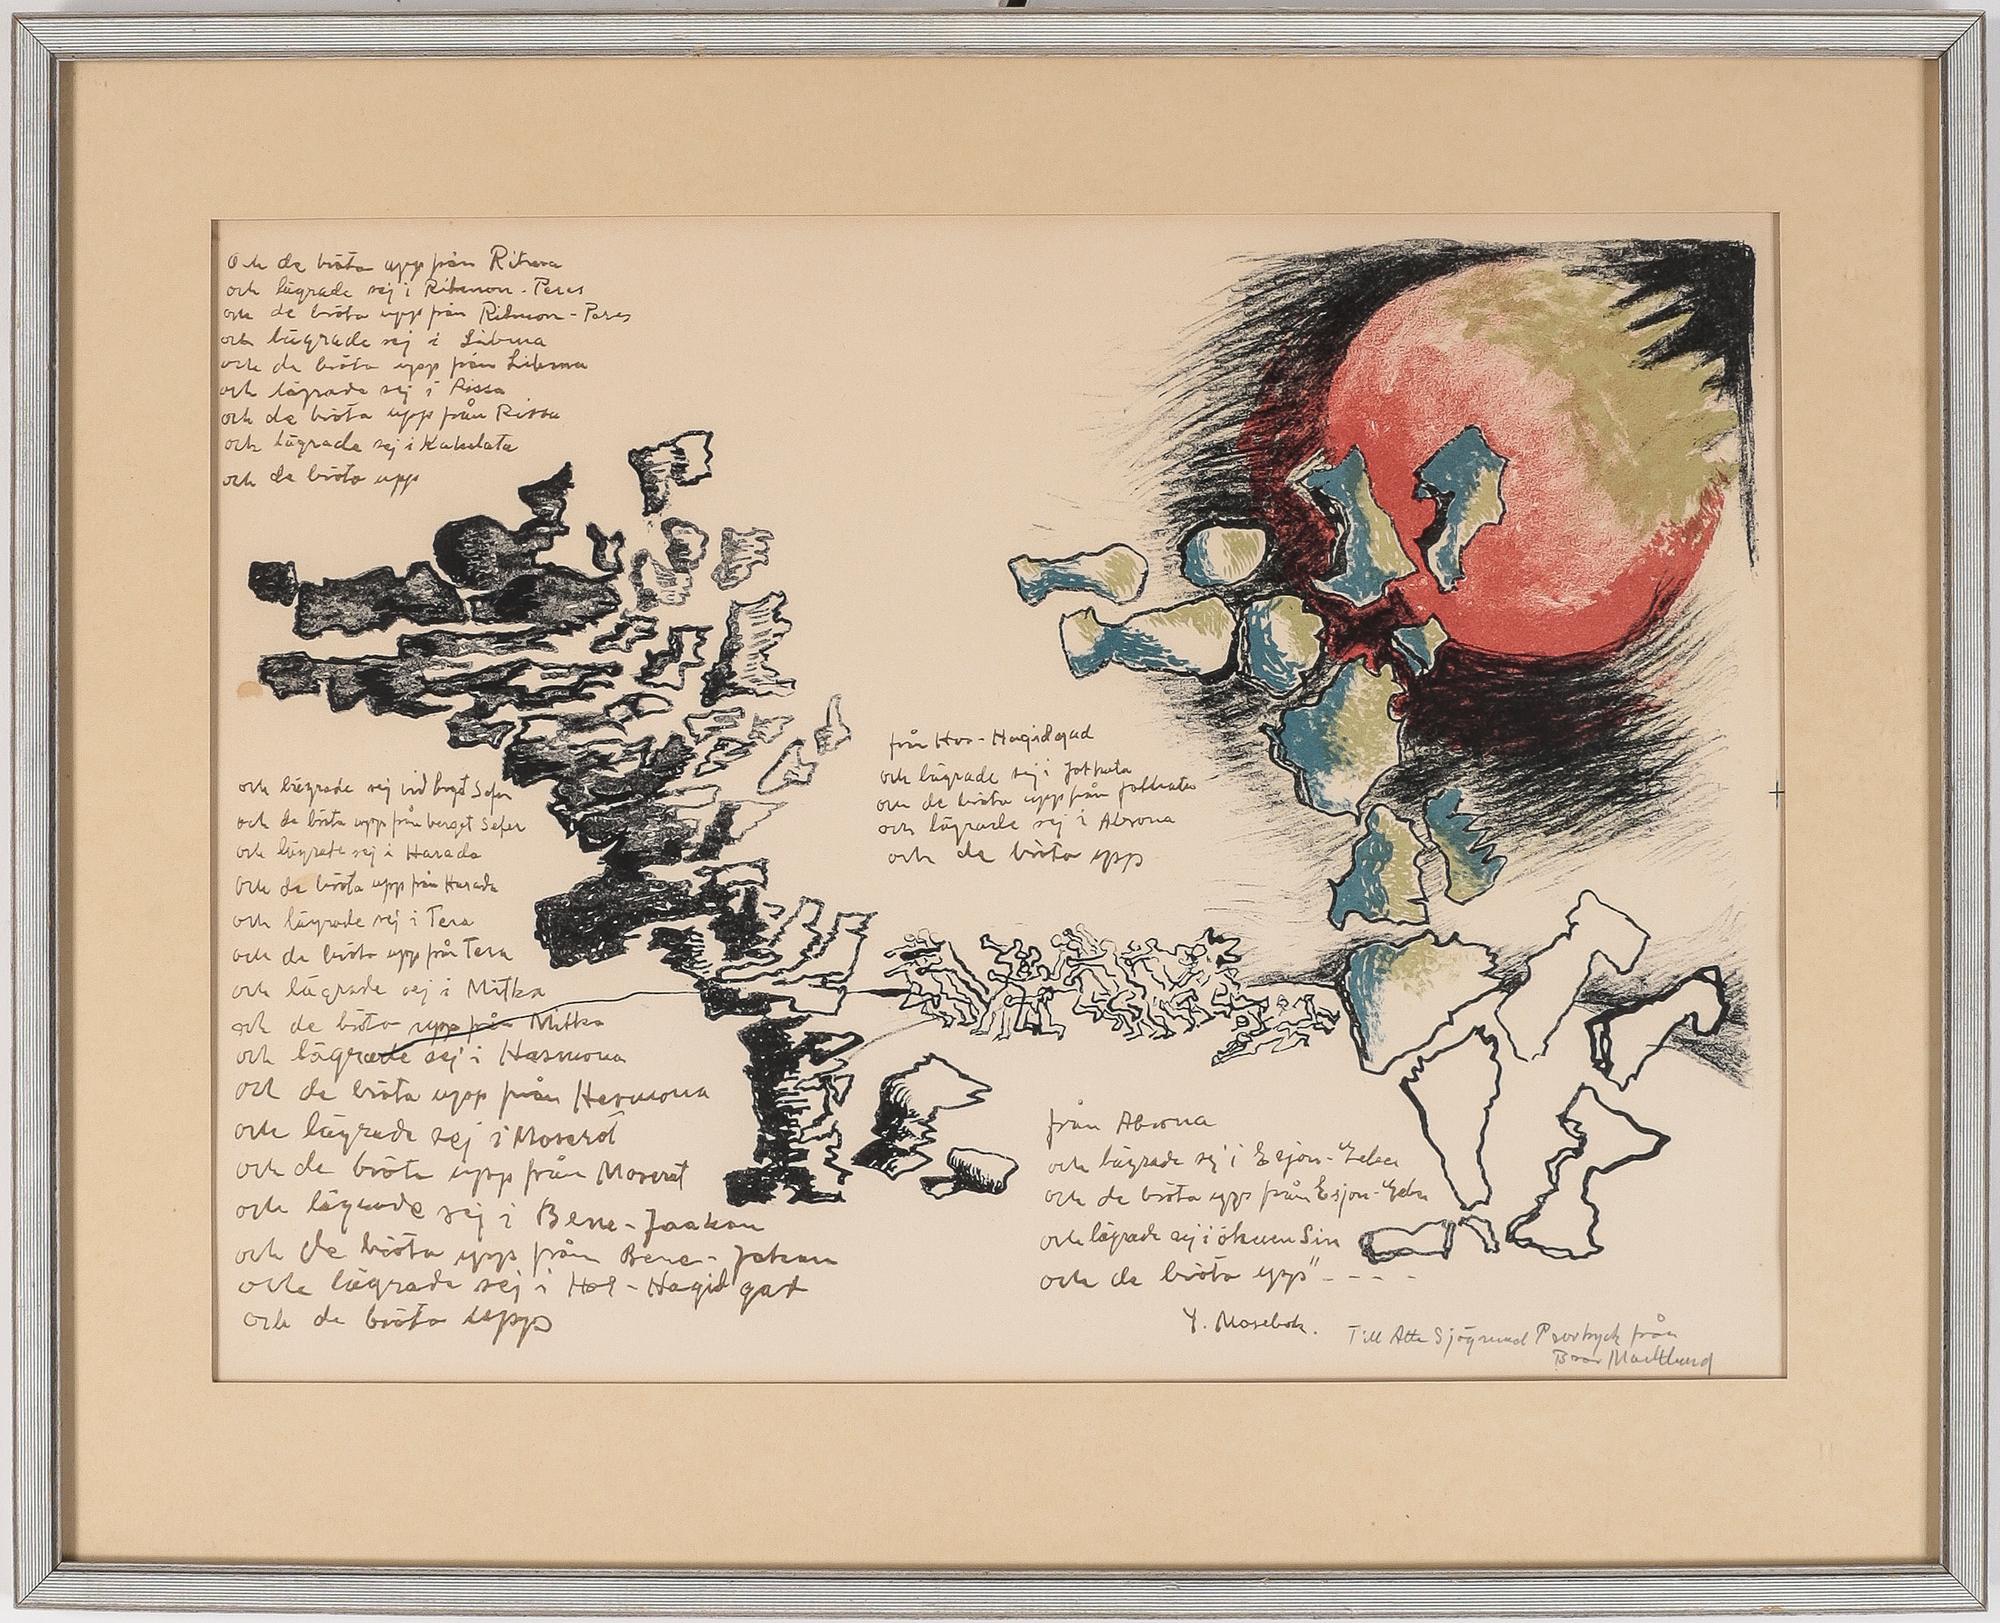 Och de bröto upp från Ritma
och lägrade sej i Rimmon-Peres
och de bröto upp från Rimmon-Peres
och lägrade sej i Libna
och de bröto upp från Libna
och lägrade sej i Rissa
och de bröto upp från Rissa
och lägrade sej i Kehelata
och de bröto upp
och lägrade sej vid berget Sefer
och de bröto upp från berget Sefer
och lägrade sej i Harada
och de bröto upp från Harada
och lägrade sej i Tera
och de bröto upp från Tera
och lägrade sej i Mitka
och de bröto upp från Mitka
och lägrade sej i Hasmona
och de bröto upp från Hasmona
och lägrade sej i Moserot
och de bröto upp från Moserot
och lägrade sej i Bene-Jaakan
och de bröto upp från Bene-Jakan
och lägrade sej i Hor-Hagidgad
och de bröto upp
från Hor-Hagidgad
och lägrade sej i Jotbata
och de bröto upp från Jotbata
och lägrade sej i Abrona
och de bröto upp
från Abrona
och lägrade sej i Esjon-Geber
och de bröto upp från Esjon-Geber
och lägrade sej i öknen Sin
och de bröto upp" - - - -
4. Mosebok.
Till Atte Sjögrund Provtryck från
Bror Marklund